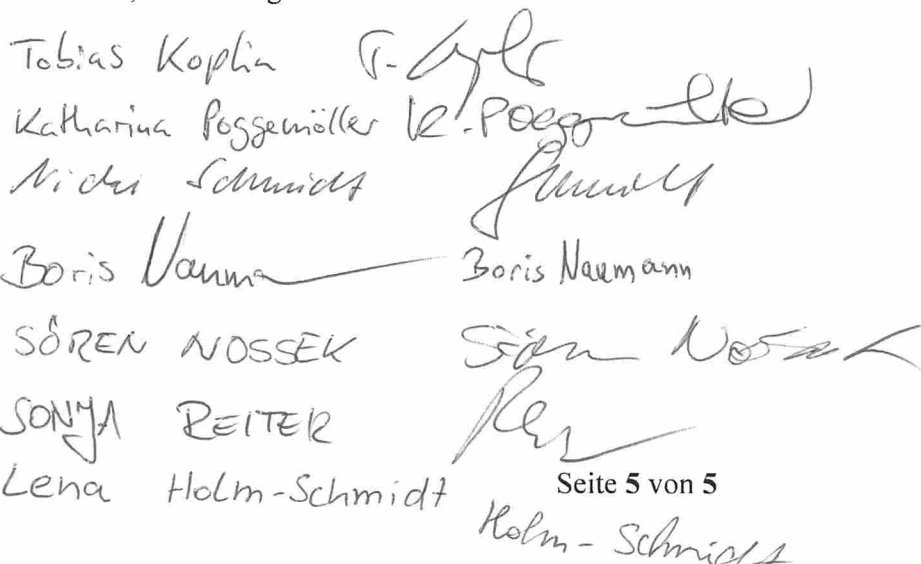 Tobias Koplin T.
Katharina Poggemöller K. Poggemöller
Schmidt Schmidt
Boris Naumann Boris Naumann
SÖREN NOSSEK Sören Nossek
SONJA REITER
Lena Holm-Schmidt
Seite 5 von 5
Holm-Schmidt